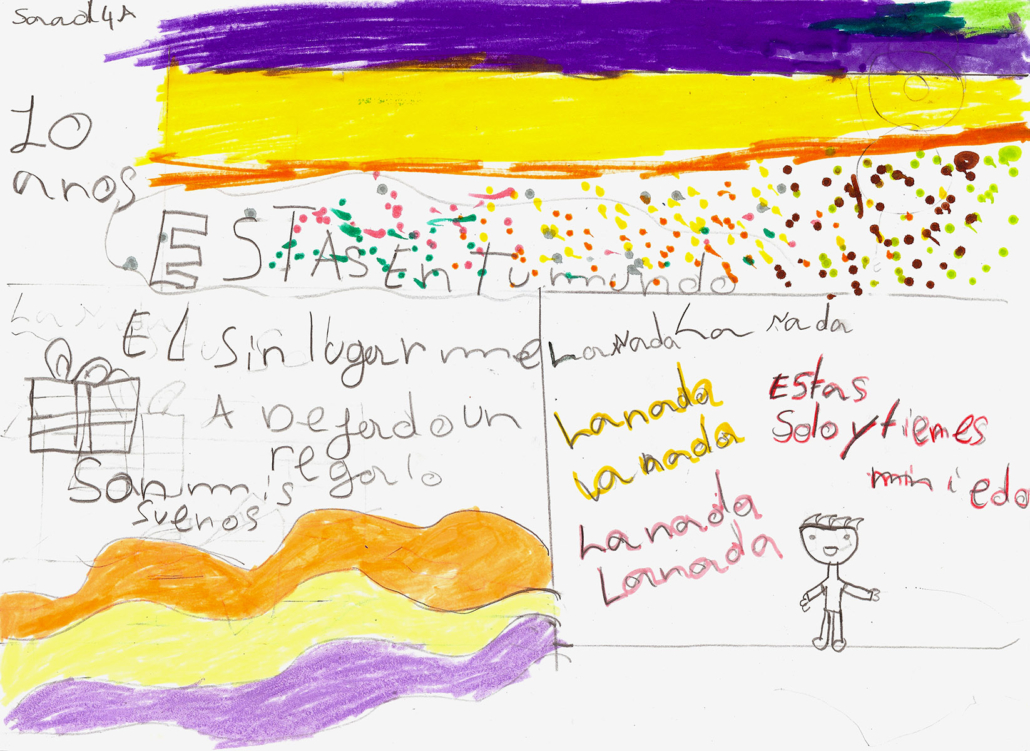 4A
10
anos
ESTAS En tu mundo
EL sin lugar me
A Dejado un
regalo
Son mis
suenos
La Nada La nada
La nada
La nada
La nada
La nada
Estas
Solo y tienes
miedo